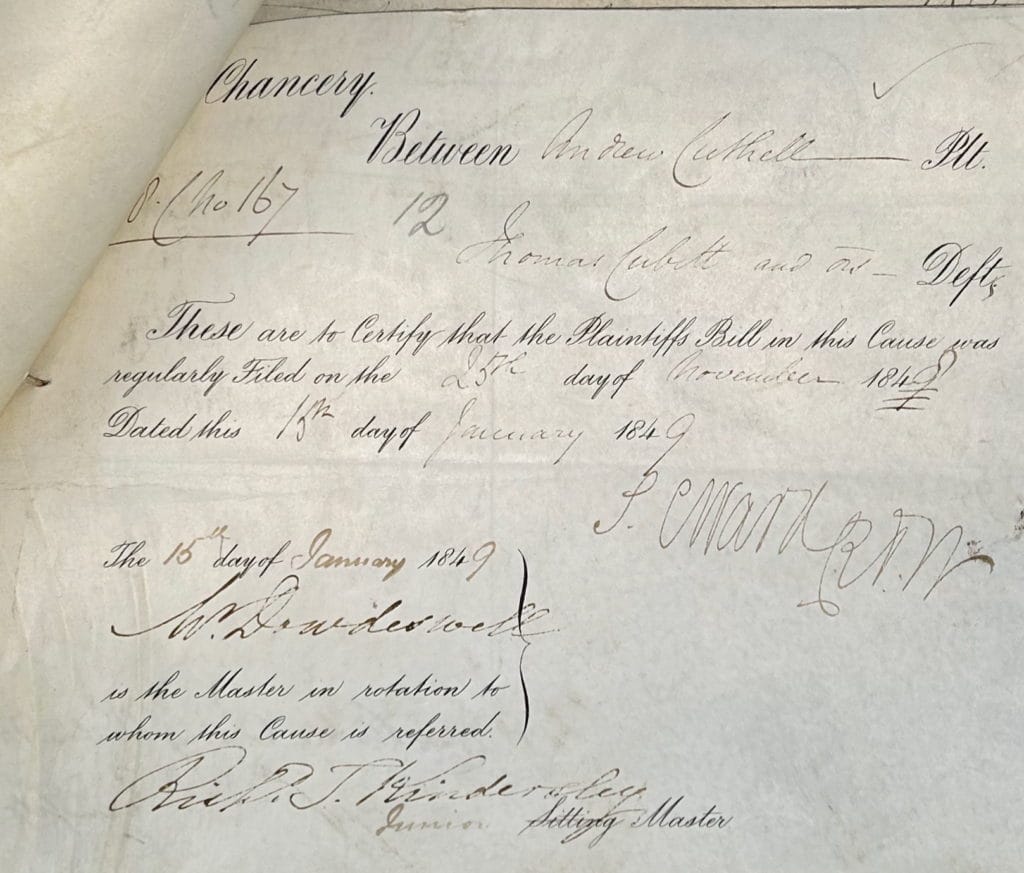 Chancery.
Between Andrew Cuthell Plt.
8. C No 167 12
Thomas Cubitt and ors Defts
These are to Certify that the Plaintiffs Bill in this Cause was
regularly Filed on the 25th day of November 1848
Dated this 15th day of January 1849
The 15th day of January 1849
Mr. Dowdeswell
is the Master in rotation to
whom this Cause is referred.
Richd. T. Kindersley
Junior Sitting Master